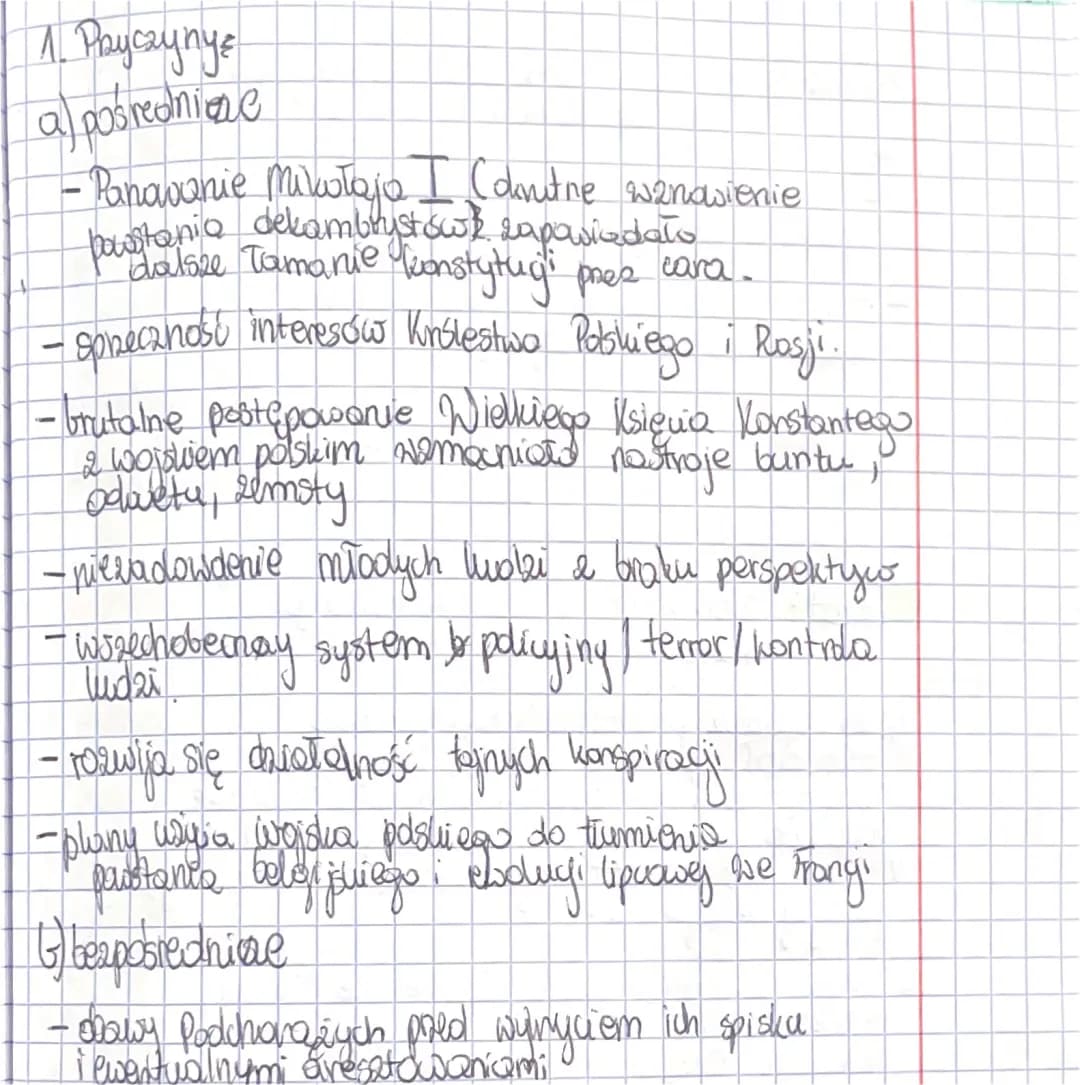 1. Przyczyny:
a) pośrednie
- Panowanie Mikołaja I (okrutne wznawienie
powstania dekambrystów) zapowiadało
dalsze łamanie konstytucji przez cara.
- sprzeczność interesów Królestwa Polskiego i Rosji.
- brutalne postępowanie Wielkiego Księcia Konstantego
z wojskiem polskim wzmacniało nastroje buntu,
odwetu, zemsty
- niezadowolenie młodych ludzi z braku perspektyw
- wszechobecnay system policyjny / terror / kontrola
ludzi.
- rozwija się działalność tajnych konspiracji
- plany użycia wojska polskiego do tłumienia
powstania belgijskiego i rewolucji lipcowej we Francji
b) bezpośrednie
- obawy Podchorążych przed wykryciem ich spisku
i ewentualnymi aresztowaniami